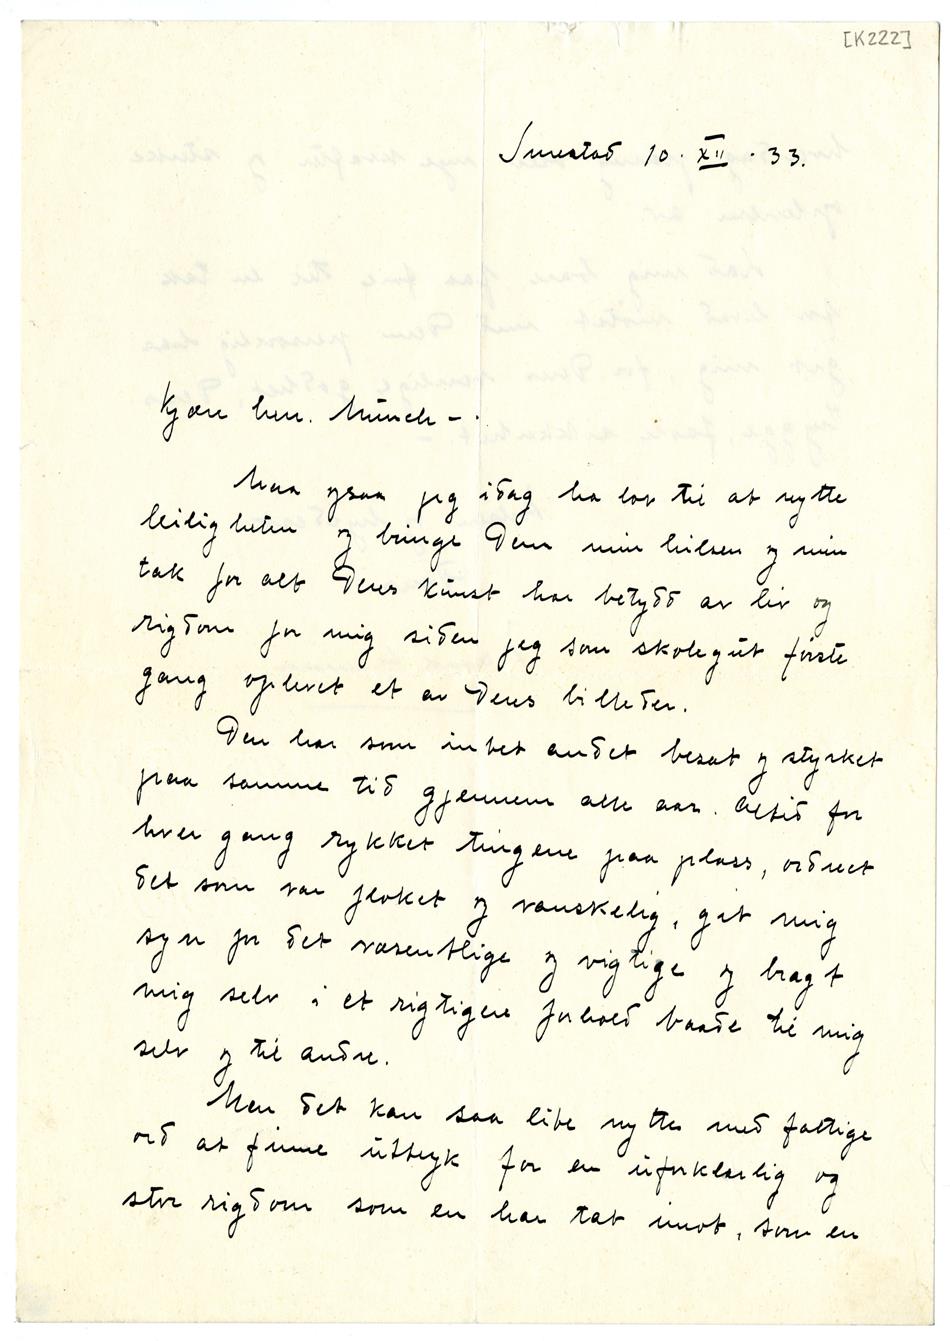 [K222]
Smestad 10. XII. 33.
Kjære herr. Münch –
Maa ogsaa jeg idag ha lov til at nytte
leiligheten og bringe Dem min hilsen og min
tak for alt Deres künst har betydd av liv og
rigdom for mig siden jeg som skolegüt første
gang oplevet et av Deres billeder.
Den har som intet andet besat og styrket
paa samme tid gjennem alle aar. Altid for
hver gang rykket tingene paa plass, ordnet
det som var floket og vanskelig, git mig
syn for det væsentlige og vigtige og bragt
mig selv i et rigtigere forhold baade til mig
selv og til andre.
Men det kan saa lite nytte med fattige
ord at finne üttryk for en üforklarlig og
stor rigdom som en har tat imot, som en